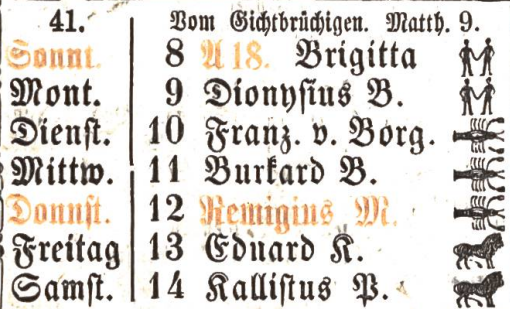 41. Vom Gichtbrüchigen. Matth. 9.
Sonnt. 8 A 18. Brigitta
Mont. 9 Dionysius B.
Dienst. 10 Franz. v. Borg.
Mittw. 11 Burkard B.
Donnst. 12 Remigius M.
Freitag 13 Eduard K.
Samst. 14 Kallistus P.